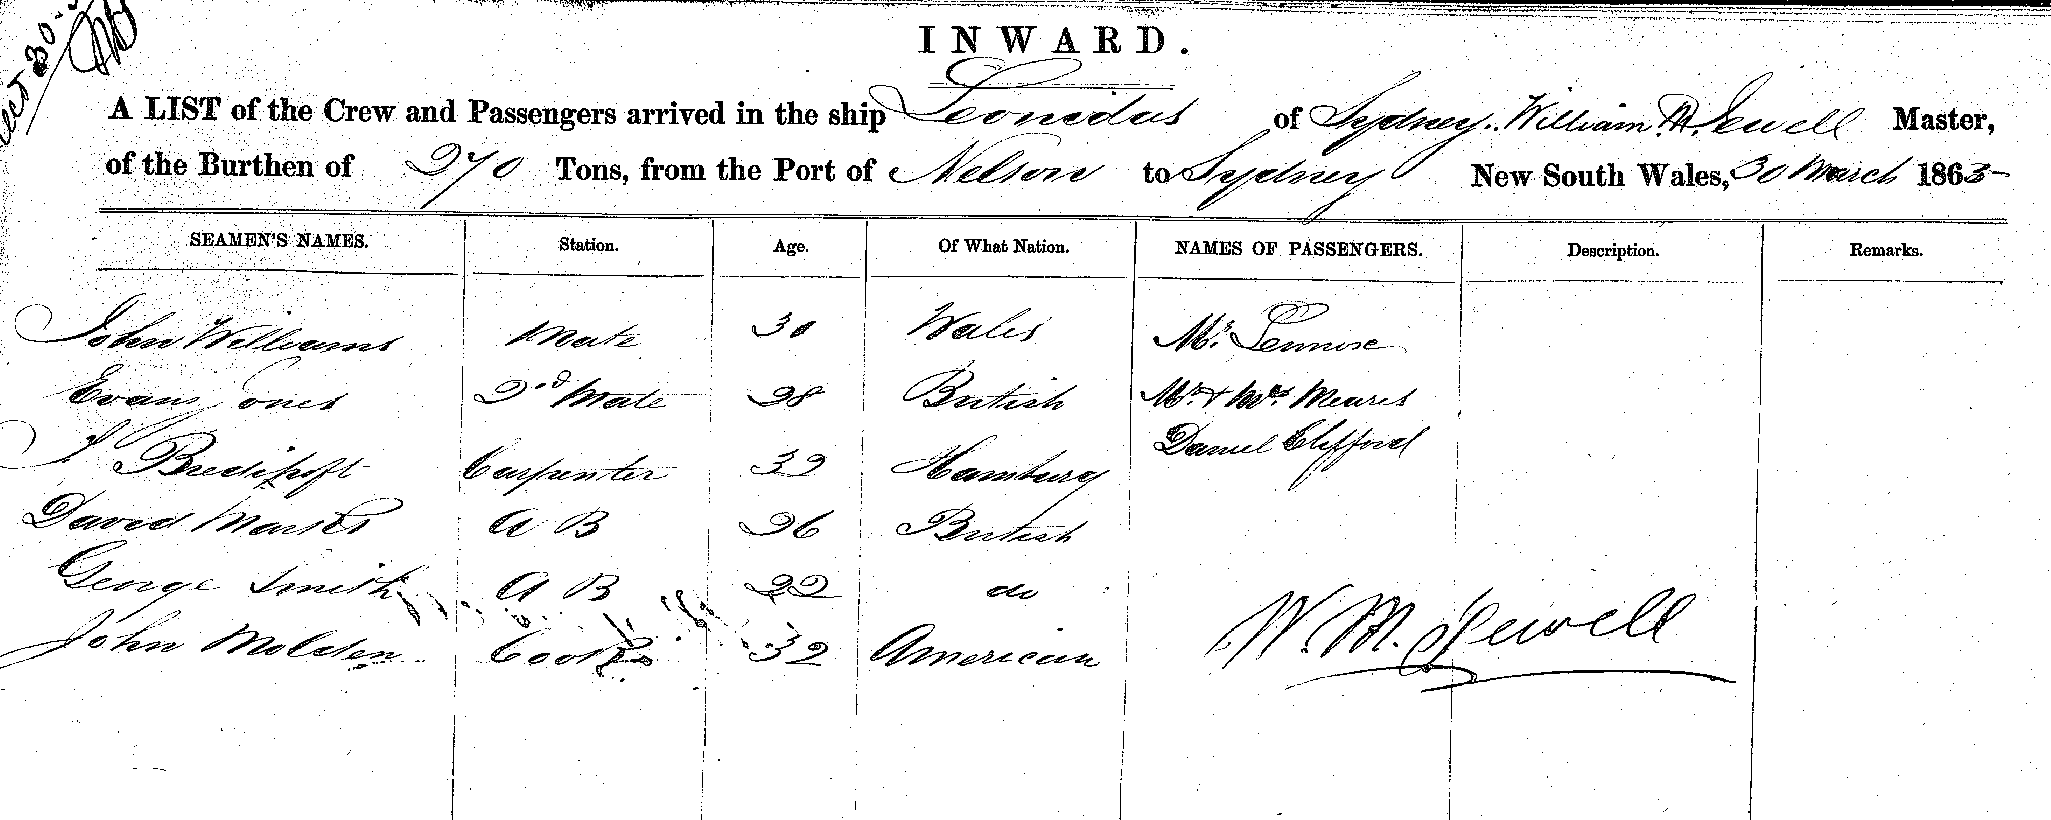 30
INWARD.
A LIST of the Crew and Passengers arrived in the ship Leonidas of Sydney. William M. Jewell Master,
of the Burthen of 270 Tons, from the Port of Nelson to Sydney New South Wales, 30 March 1863
SEAMEN'S NAMES. Station. Age. Of What Nation. NAMES OF PASSENGERS. Description. Remarks.
John Williams Mate 30 Wales Mr.
Evan Jones 2nd Mate 28 British Mr & Mrs Meares
Carpenter 32 Hamburg Daniel Clifford
David A B 26 British
George Smith A B 22 do
John Molden Cook 32 American
W. M. Jewell